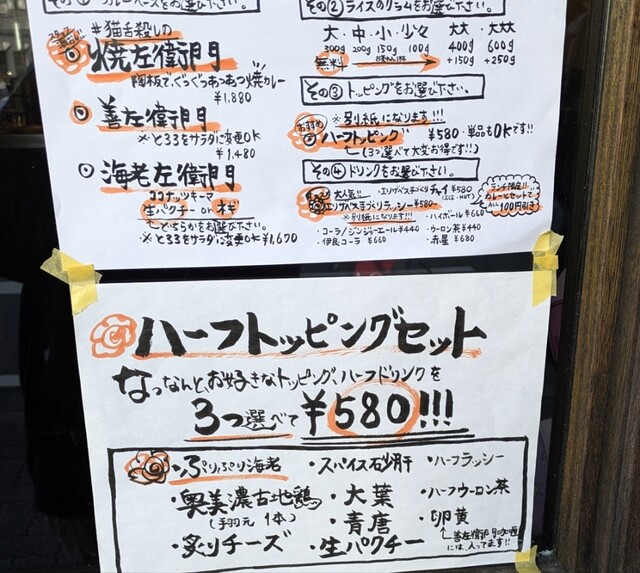 その① カレーベースをお選び下さい。
#猫舌殺しの
焼左衛門
陶板で、ぐっぐっあつあつ焼カレー
¥1.880
善左衛門
※とろろをサラダに変更OK
¥1,480
海老左衛門
ココナッツキーマ
生パクチー or ネギ
どちらかをお選び下さい。
※とろろをサラダに変更OK ¥1,670
その② ライスのグラムをお選び下さい。
大・中・小・少々 大大・大大大
300g 200g 150g 100g 400g 600g
無料 +150円 +250円
その③ トッピングをお選び下さい。
※別紙になります!!!
おすすめ
ハーフトッピング ¥580・単品もOKです!!
(3つ選べて大変お得です!!)
その④ ドリンクをお選び下さい。
大人気!! ・エリザベス手づくりチャイ ¥580
エリザベス手づくりラッシー ¥580
※別紙になります!!!
・ハイボール ¥660
・コーラ/ジンジャーエール ¥440 ・ウーロン茶 ¥440
・伊良コーラ ¥660 ・赤星 ¥680
ランチ限定!!
カレーとセットで
ALL 100円引き!
ハーフトッピングセット
なっなんと、お好きなトッピング、ハーフドリンクを
3つ選べて ¥580!!!
・ぷりぷり海老 ・スパイス砂肝 ・ハーフラッシー
・奥美濃古地鶏 ・大葉 ・ハーフウーロン茶
(手羽元 1本) ・青唐 ・卵黄
・炙りチーズ ・生パクチー
善左衛門
には、入ってます!!